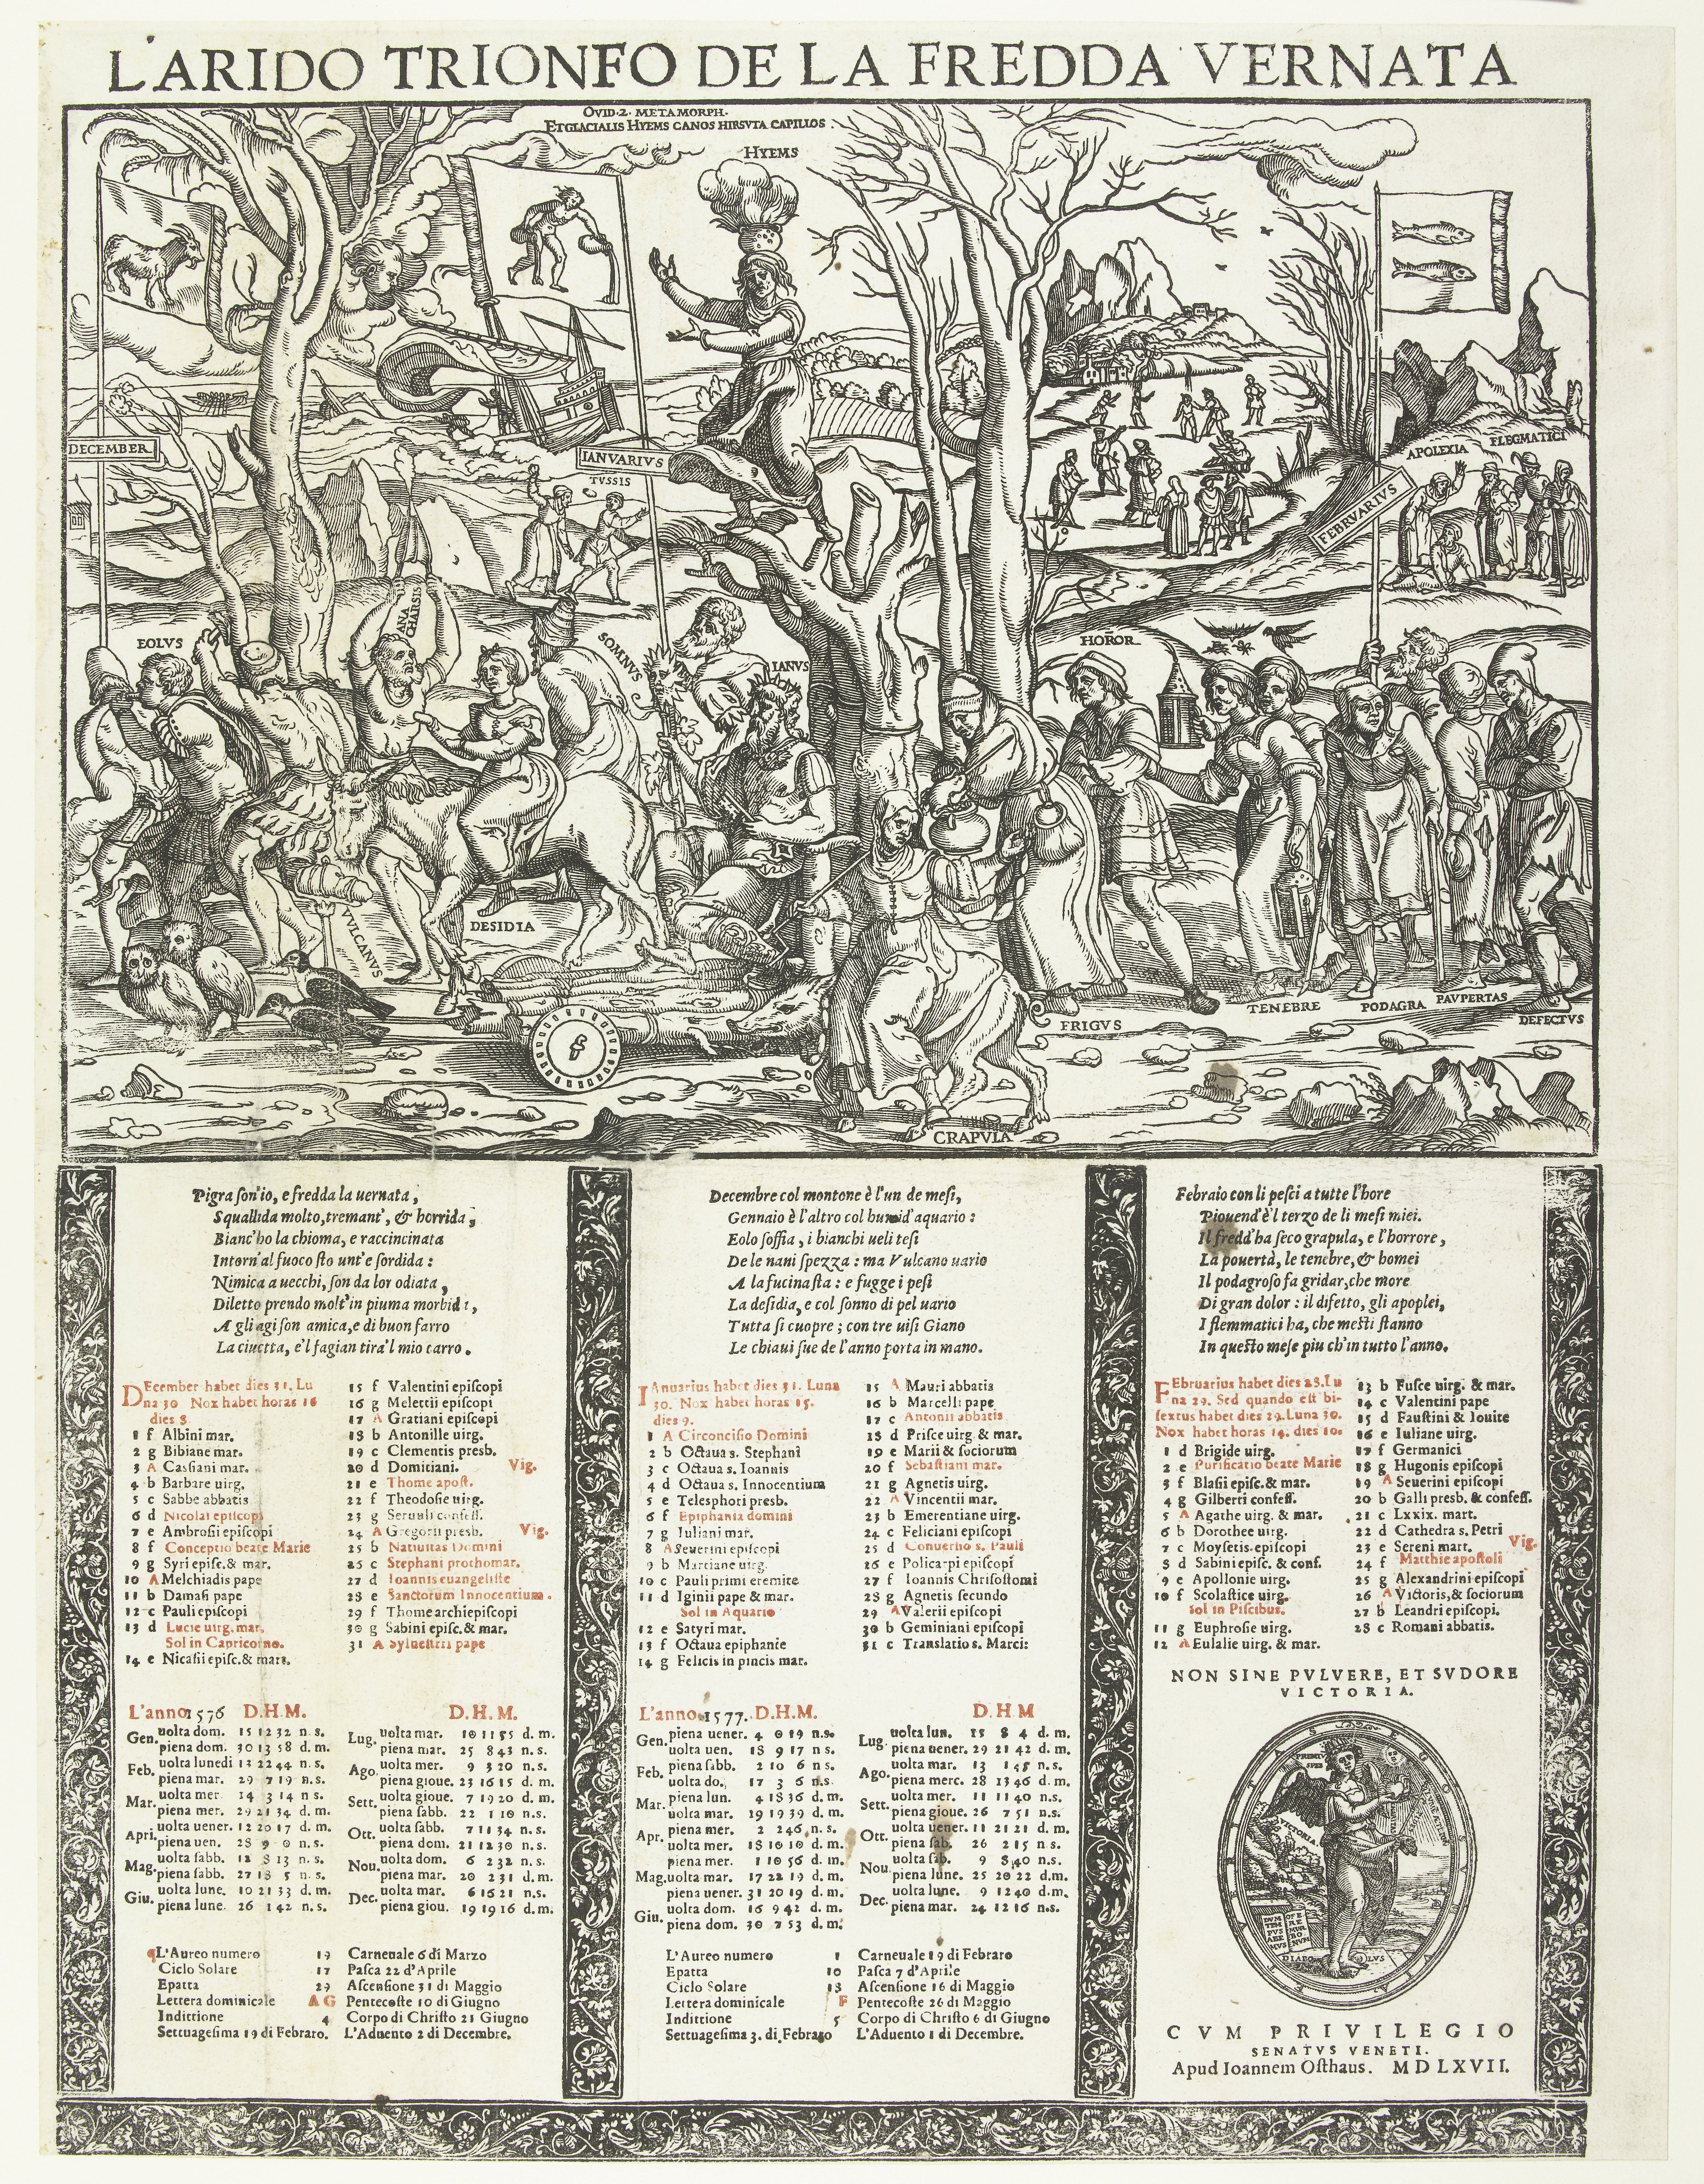 L'ARIDO TRIONFO DE LA FREDDA VERNATA
OVID. 2. METAMORPH.
ET GLACIALIS HYEMS CANOS HIRSVTA CAPILLOS.
HYEMS
DECEMBER
IANVARIVS
TVSSIS
FEBRVARIVS
APOLEXIA
FLEGMATICI
EOLVS
ANA
CHARSIS
SOMNVS
IANVS
HOROR
VVLCANVS
DESIDIA
FRIGVS
TENEBRE
PODAGRA
PAVPERTAS
DEFECTVS
CRAPVLA
Pigra son'io, e fredda la uernata,
Squallida molto, tremant', & horrida;
Bianc'ho la chioma, e raccincinata
Intorn'al fuoco sto unt'e sordida:
Nimica a uecchi, son da lor odiata,
Diletto prendo molt'in piuma morbida,
A gli agi son amica, e di buon farro
La ciuetta, e'l fagian tira'l mio carro.
Decembre col montone è l'un de mesi,
Gennaio è l'altro col humid'aquario:
Eolo soffia, i bianchi ueli tesi
De le naui spezza: ma Vulcano uario
A la fucina sta: e fugge i pesi
La desidia, e col sonno di pel uario
Tutta si cuopre; con tre uisi Giano
Le chiaui sue de l'anno porta in mano.
Febraio con li pesci a tutte l'hore
Piouend'è'l terzo de li mesi miei.
Il fredd'ha seco grapula, e l'horrore,
La pouertà, le tenebre, & homei
Il podagroso fa gridar, che more
Di gran dolor: il difetto, gli apoplei,
I flemmatici ha, che mesti stanno
In questo mese piu ch'in tutto l'anno.
DEcember habet dies 31. Lu
na 30 Nox habet horas 16
dies 8
1 f Albini mar.
2 g Bibiane mar.
3 A Cassiani mar.
4 b Barbare uirg.
5 c Sabbe abbatis
6 d Nicolai episcopi
7 e Ambrosii episcopi
8 f Conceptio beate Marie
9 g Syri episc. & mar.
10 A Melchiadis pape
11 b Damasi pape
12 c Pauli episcopi
13 d Lucie uirg. mar.
Sol in Capricorno.
14 e Nicasii episc. & mart.
15 f Valentini episcopi
16 g Meletii episcopi
17 A Gratiani episcopi
18 b Antonille uirg.
19 c Clementis presb.
20 d Domitiani. Vig.
21 e Thome apost.
22 f Theodosie uirg.
23 g Seruuli confess.
24 A Gregorii presb. Vig.
25 b Natiuitas Domini
26 c Stephani prothomar.
27 d Ioannis euangeliste
28 e Sanctorum Innocentium.
29 f Thome archiepiscopi
30 g Sabini episc. & mar.
31 A Syluestri pape
IAnuarius habet dies 31. Luna
30. Nox habet horas 15.
dies 9.
1 A Circoncisio Domini
2 b Octaua s. Stephani
3 c Octaua s. Ioannis
4 d Octaua s. Innocentium
5 e Telesphori presb.
6 f Epiphania domini
7 g Iuliani mar.
8 A Seuerini episcopi
9 b Martiane uirg.
10 c Pauli primi eremite
11 d Iginii pape & mar.
Sol in Aquario
12 e Satyri mar.
13 f Octaua epiphanie
14 g Felicis in pincis mar.
15 A Mauri abbatis
16 b Marcelli pape
17 c Antonii abbatis
18 d Prisce uirg & mar.
19 e Marii & sociorum
20 f Sebastiani mar.
21 g Agnetis uirg.
22 A Vincentii mar.
23 b Emerentiane uirg.
24 c Feliciani episcopi
25 d Conuersio s. Pauli
26 e Policarpi episcopi
27 f Ioannis Chrisostomi
28 g Agnetis secundo
29 A Valerii episcopi
30 b Geminiani episcopi
31 c Translatio s. Marci:
FEbruarius habet dies 28. Lu
na 29. Sed quando est bi-
sextus habet dies 29. Luna 30.
Nox habet horas 14. dies 10.
1 d Brigide uirg.
2 e Purificatio beate Marie
3 f Blasii episc. & mar.
4 g Gilberti confess.
5 A Agathe uirg. & mar.
6 b Dorothee uirg.
7 c Moysetis episcopi
8 d Sabini episc. & conf.
9 e Apollonie uirg.
10 f Scolastice uirg.
Sol in Piscibus.
11 g Euphrosie uirg.
12 A Eulalie uirg. & mar.
13 b Fusce uirg. & mar.
14 c Valentini pape
15 d Faustini & Iouite
16 e Iuliane uirg.
17 f Germanici
18 g Hugonis episcopi
19 A Seuerini episcopi
20 b Galli presb. & confess.
21 c Lxxix. mart.
22 d Cathedra s. Petri
23 e Sereni mart. Vig.
24 f Matthie apostoli
25 g Alexandrini episcopi
26 A Victoris, & sociorum
27 b Leandri episcopi.
28 c Romani abbatis.
L'anno 1576 D.H.M.
Gen. uolta dom. 15 12 32 n.s.
piena dom. 30 13 58 d.m.
Feb. uolta lunedi 13 22 44 n.s.
piena mar. 29 7 19 n.s.
Mar. uolta mer 14 3 14 n s
piena mer. 29 21 34 d.m.
Apri. uolta uener. 12 20 17 d.m.
piena uen. 28 9 0 n.s.
Mag. uolta sabb. 12 8 13 n.s.
piena sabb. 27 18 5 n.s.
Giu. uolta lune. 10 21 33 d.m.
piena lune. 26 1 42 n.s.
D.H.M.
Lug. uolta mar. 10 11 55 d.m.
piena mar. 25 8 43 n.s.
Ago. uolta mer. 9 3 20 n.s.
piena gioue. 23 16 15 d.m.
Sett. uolta gioue. 7 19 20 d.m.
piena sabb. 22 1 10 n.s.
Ott. uolta sabb. 7 11 34 n.s.
piena dom. 21 12 30 n.s.
Nou. uolta dom. 6 2 32 n.s.
piena mar. 20 2 31 d.m.
Dec. uolta mar. 6 16 21 n.s.
piena giou. 19 19 16 d.m.
L'anno 1577. D.H.M.
Gen. piena uener. 4 0 19 n.s.
uolta uen. 18 9 17 n s.
Feb. piena sabb. 2 10 6 n s.
uolta do. 17 3 6 n.s.
Mar. piena lun. 4 18 36 d.m.
uolta mar. 19 19 39 d.m.
Apr. piena mer. 2 2 46 n.s.
uolta mer. 18 10 10 d.m.
piena mer. 1 10 56 d.m.
Mag. uolta mar. 17 22 19 d.m.
piena uener. 31 20 19 d.m.
Giu. uolta dom. 16 9 42 d.m.
piena dom. 30 7 53 d.m.
D H M
Lug. uolta lun. 15 8 4 d.m.
piena uener. 29 21 42 d.m.
Ago. uolta mar. 13 n.s.
piena merc. 28 13 46 d.m.
Sett. uolta mer. 11 11 40 n.s.
piena gioue. 26 7 51 n.s.
Ott. uolta uener. 11 21 21 d.m.
piena sab. 26 2 15 n.s.
Nou. uolta sab. 9 8 40 n.s.
piena lune. 25 20 22 d.m.
Dec. uolta lune. 9 12 40 d.m.
piena mar. 24 12 16 n.s.
L'Aureo numero 19
Ciclo Solare 17
Epatta 29
Lettera dominicale A G
Indittione 4
Settuagesima 19 di Febraro.
Carneuale 6 di Marzo
Pasca 22 d'Aprile
Ascensione 31 di Maggio
Pentecoste 10 di Giugno
Corpo di Christo 21 Giugno
L'Aduento 2 di Decembre.
L'Aureo numero 1
Epatta 10
Ciclo Solare 18
Lettera dominicale F
Indittione 5
Settuagesima 3. di Febraro
Carneuale 19 di Febraro
Pasca 7 d'Aprile
Ascensione 16 di Maggio
Pentecoste 26 di Maggio
Corpo di Christo 6 di Giugno
L'Aduento 1 di Decembre.
NON SINE PVLVERE, ET SVDORE
VICTORIA.
VICTORIA
DVM
TEM
PVS
HABE
MVS
OPE
RE
MVR
BO
NVM
CVM PRIVILEGIO
SENATVS VENETI.
Apud Ioannem Osthaus. MDLXVII.